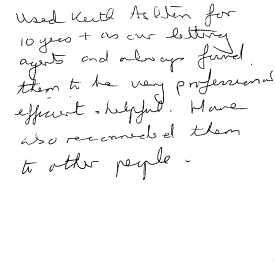 Used Keith Ashton for
10 years + as our letting
agents and always found
them to be very professional
efficient & helpful. Have
also recommended them
to other people.